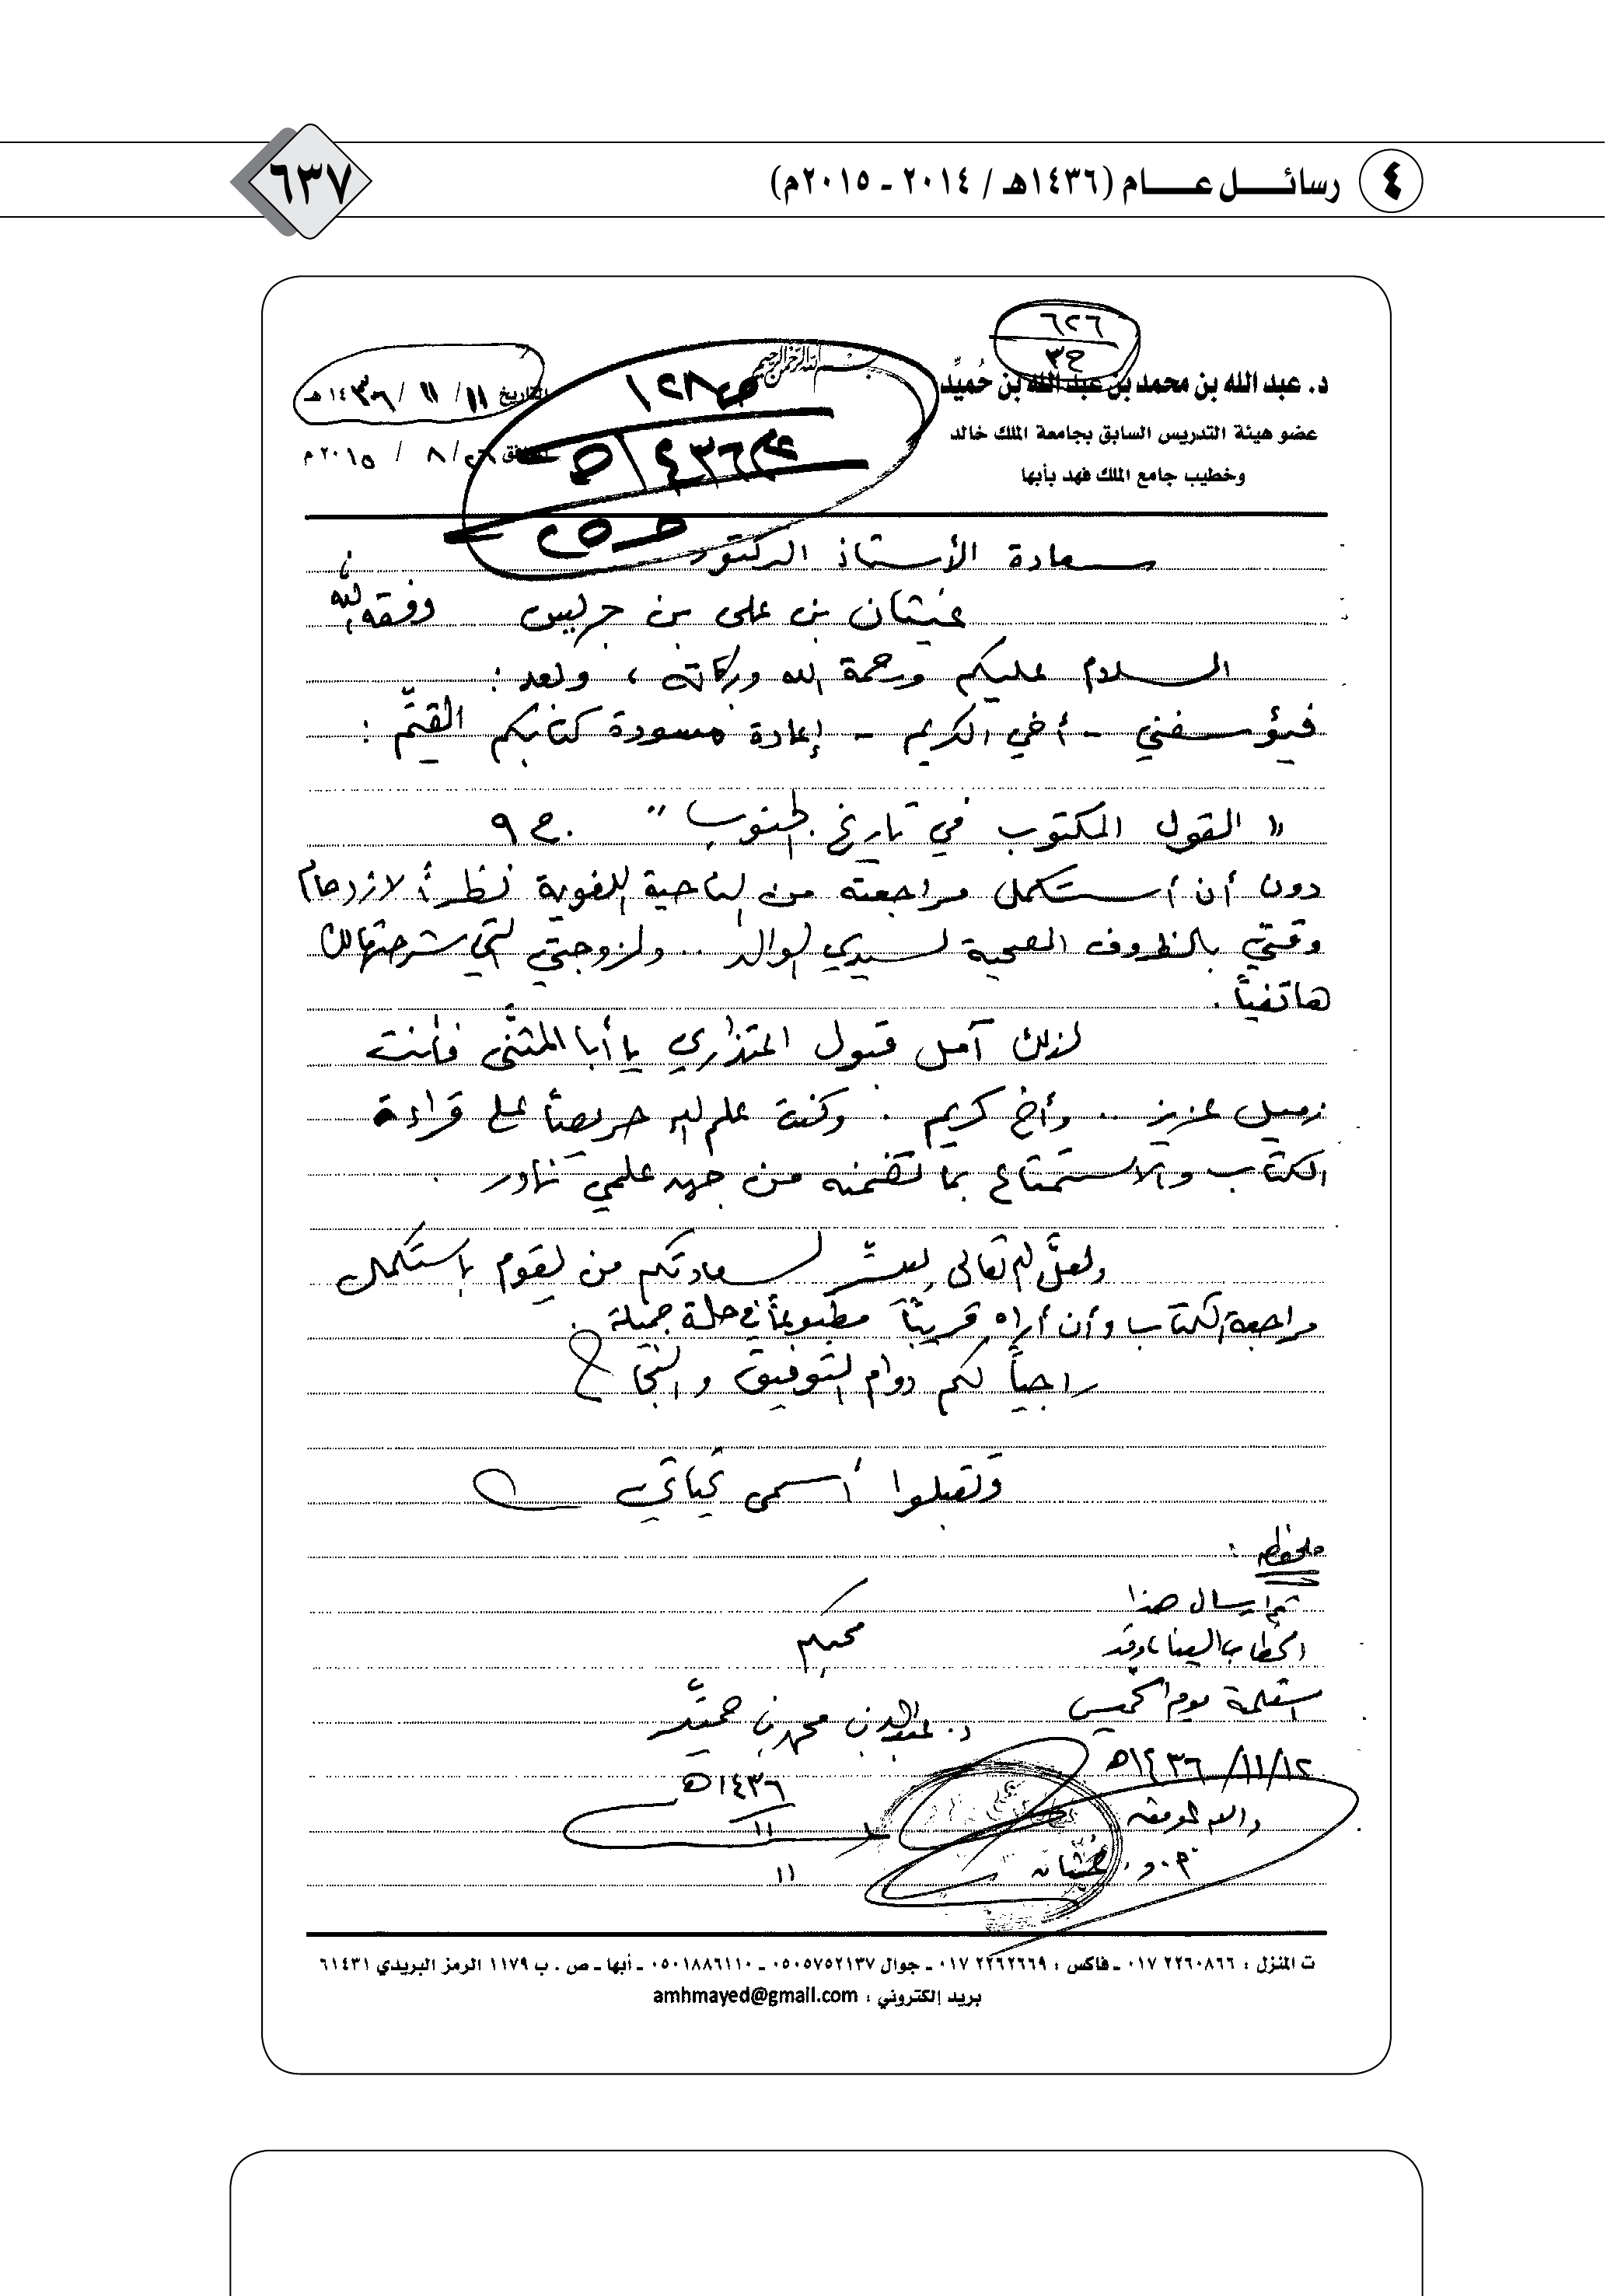 ٤ رسائل عام (١٤٣٦هـ / ٢٠١٤ - ٢٠١٥م)
٦٣٧
٦٢٦
ج٣
بسم الله الرحمن الرحيم
د. عبد الله بن محمد بن عبد الله بن حُميِّد
عضو هيئة التدريس السابق بجامعة الملك خالد
وخطيب جامع الملك فهد بأبها
التاريخ ١١/ ١١/ ١٤٣٦هـ
٢٦/ ٨ / ٢٠١٥م
عام ١٤٣٦هـ
سعادة الأستاذ الدكتور
غيثان بن علي بن جريس وفقه الله
السلام عليكم ورحمة الله وبركاته ، وبعد :
فيؤسفني - أخي الكريم - إعادة مسودة كتابكم القيِّم :
" القول المكتوب في تاريخ الجنوب " . ج ٩
دون أن أستكمل مراجعته من الناحية اللغوية نظراً لازدحام
وقتي بالظروف الصحية لسيدي الوالد .. ولزوجتي التي شرحتها لك
هاتفياً .
لذلك آمل قبول اعتذاري يا أبا المثنَّى فأنت
زميل عزيز .. وأخ كريم . وكنت علم الله حريصاً على قراءة
الكتاب والاستمتاع بما تضمنه من جهد علمي نادر .
ولعلَّ الله تعالى ييسِّر لسعادتكم من يقوم باستكمال
مراجعة الكتاب وأن أراه قريباً مطبوعاً في حلة جميلة .
راجياً لكم دوام التوفيق والنجاح
وتقبلوا أسمى تحياتي
ملحوظة :
تم إرسال هذا
الخطاب إلينا وقد
استلمته يوم الخميس
١٢/ ١١/ ١٤٣٦هـ
والله الموفق
غيثان
محبكم
د. عبدالله بن محمد بن حميِّد
١٤٣٦هـ
١١
١١
ت المنزل : ٢٢٦٠٨٦٦ ٠١٧ ـ فاكس : ٢٢٦٢٦٦٩ ٠١٧ ـ جوال ٠٥٠٥٧٥٢١٣٧ ـ ٠٥٠١٨٨٦١١٠ ـ أبها ـ ص . ب ١١٧٩ الرمز البريدي ٦١٤٣١
بريد إلكتروني : amhmayed@gmail.com